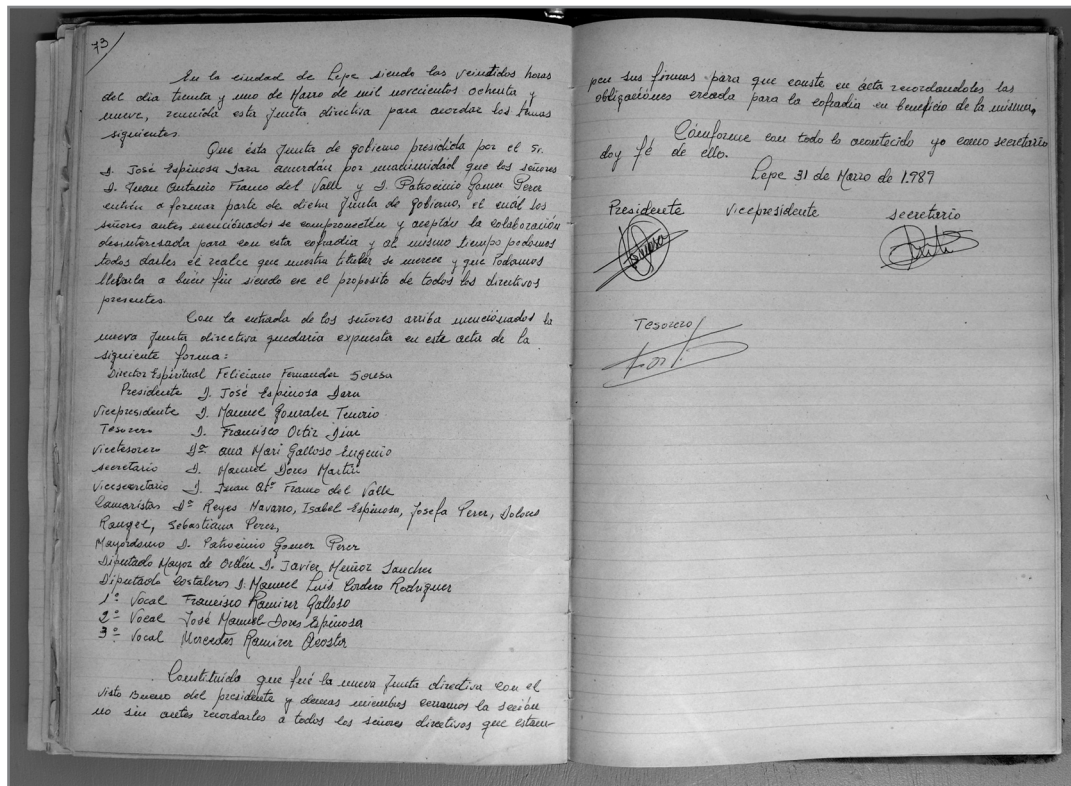 73
En la ciudad de Lepe siendo las veintidos horas
del dia treinta y uno de Marzo de mil novecientos ochenta y
nueve, reunida esta Junta directiva para acordar los temas
siguientes.
Que ésta Junta de gobierno presidida por el Sr.
D. José Espinosa Dara acuerdán por unadimidad que los señores
D. Juan Antonio Franco del Valle y D. Patrocinio Gomez Perez
entrén a formar parte de dicha Junta de Gobierno, el cuál los
señores antes mencionados se comprometén y aceptán la colaboración
desinteresada para con esta cofradia y al mismo tiempo podamos
todos darles el realce que nuestra titular se merece y que podamos
llebarla a buen fin siendo ese el proposito de todos los directivos
presentes.
Con la entrada de los señores arriba menciónados la
nueva Junta directiva quedaria expuesta en este acta de la
siguiente forma:
Director Espiritual Feliciano Fernandez Soresa
Presidente D. José Espinosa Dara
Vicepresidente D. Manuel Gonzalez Tenorio
Tesorero D. Francisco Ortiz Diaz
Vicetesorero Dª Ana Mari Galloso Eugenio
secretario D. Manuel Dores Martin
Vicesecretario D. Juan Atº Franco del Valle
Camaristas Dª Reyes Navarro, Isabel Espinosa, Josefa Perez, Dolores
Rangel, Sebastiana Perez,
Mayordomo D. Patrocinio Gomez Perez
Diputado Mayor de Ordén D. Javier Muñoz Sanchez
Diputado Costaleros D. Manuel Luis Cordero Rodriguez
1º Vocal Francisco Ramirez Galloso
2º Vocal José Manuel Dores Espinosa
3º Vocal Mercedes Ramirez Acosta
Constituida que fué la nueva Junta directiva con el
visto Bueno del presidente y demas miembros cerramos la seción
no sin antes recordarles a todos los señores directivos que estam-
pen sus firmas para que conste en ácta recordandoles las
obligaciónes creada para la cofradia en beneficio de la misma,
Cónforme con todo lo acontecido yo como secretario
doy fé de ello.
Lepe 31 de Marzo de 1.989
Presidente vicepresidente secretario
Tesorero